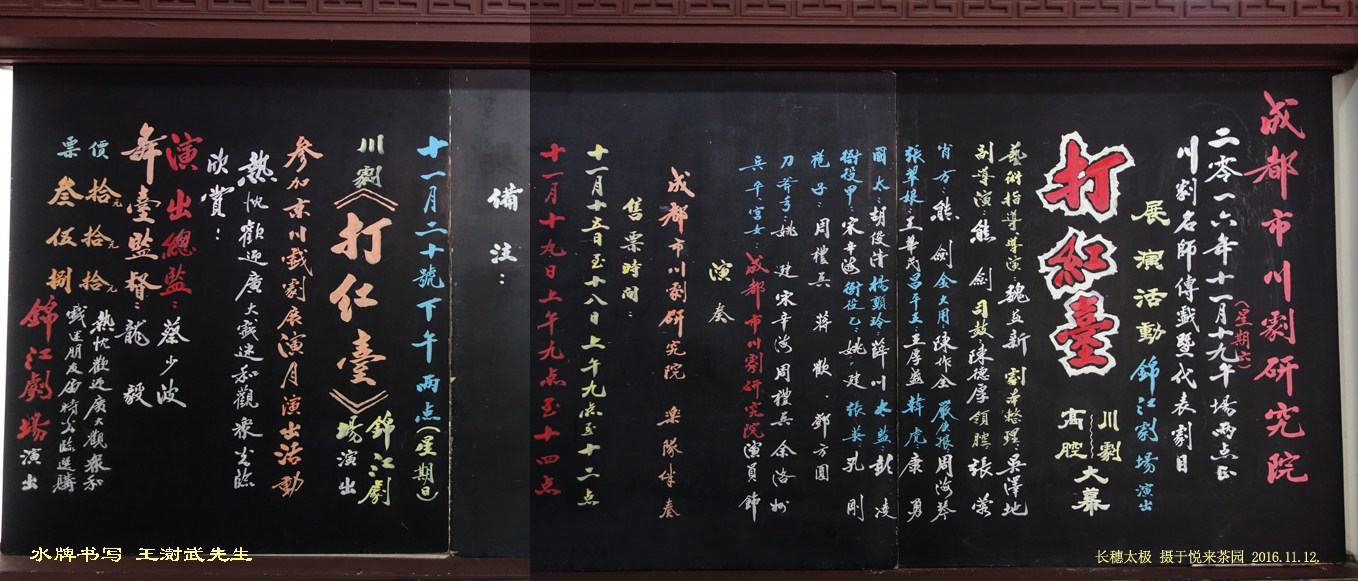 成都市川劇研究院
二零一六年十一月十九午場兩点正
(星期六)
川劇名師傳戲暨一代表劇目
展演活動 錦江劇場 演出
打紅臺
川劇
高腔
大幕
藝術指導:導演 魏益新 劇本整理:吴澤地
副導演:熊 劍 司鼓:陳德厚 領腔:張 蓉
肖方:熊 劍 金大用:陳作全 嚴庭振:周海琴
張翠娘:王華茂 昌平王:王厚盛 韓 虎:康 勇
國太:胡俊清 橋頭玲:薛川 太監:彭 凌
衙役甲:宋辛海 衙役乙:姚 建 張英 孔 剛
袍子:周禮兵 蔣 歡 鄧方圆
刀斧手:姚 建 宋辛海 周禮兵 余洛州
兵卒宫女:成都市川劇研究院演員飾
演奏
成都市川劇研究院 樂隊伴奏
售票時间:
十一月十五日至十八日上午九点至十二点
十一月十九日上午九点至十四点
備注:
十一月二十號下午兩点(星期日)
川劇《打红臺》錦江劇場演出
參加京川戲劇展演月演出活動
熱忱歡迎廣大戲迷和觀衆光臨
欣賞!
演出總監:蔡少波
舞臺監督:龍 毅
價 拾元 拾元 拾元
票 叁 伍 捌
熱忱歡迎廣大觀衆和
戲迷朋友届時光臨選購
錦江劇場演出
水牌书写 王澍武先生
长穗太极 摄于悦来茶园 2016.11.12.